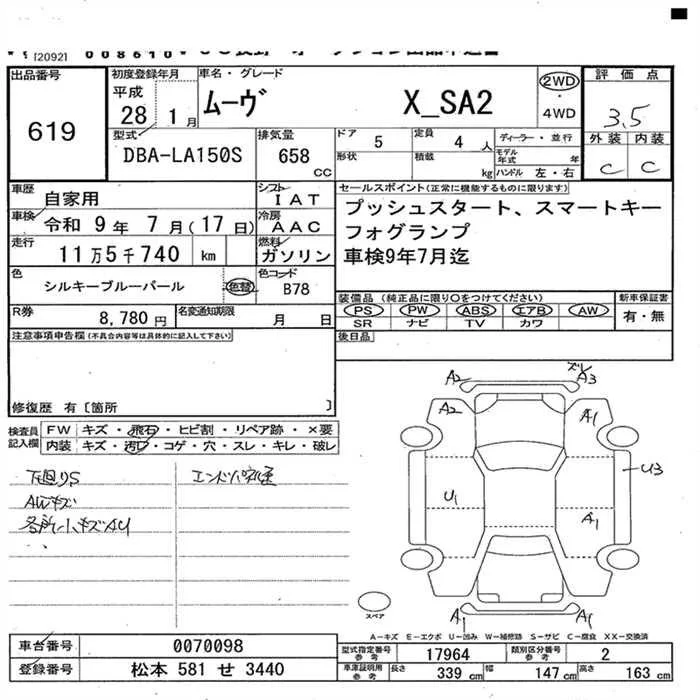 [2092]
出品番号
619
初度登録年月
平成
28 1月
車名・グレード
ムーヴ X_SA2
2WD
4WD
評価点
3.5
外装 内装
C C
型式
DBA-LA150S
排気量
658
CC
ドア 5
形状
定員 4人
積載 kg
ディーラー・並行
モデル年式 年
ハンドル 左・右
車歴
自家用
シフト
IAT
車検
令和 9年 7月(17日)
冷房
AAC
走行
11万5千740 km
燃料
ガソリン
色
シルキーブルーパール 色替
色コード
B78
R券
8,780円
名変通知期限
月 日
セールスポイント(正常に機能するものに限ります)
プッシュスタート、スマートキー
フォグランプ
車検9年7月迄
装備品(純正品に限り○をつけてください)
PS PW ABS エアB AW
SR ナビ TV カワ
新車保証書
有・無
後日品
注意事項申告欄(不具合内容等は具体的に記入して下さい)
修復歴 有〔箇所 〕
検査員
記入欄
FW キズ・飛石・ヒビ割・リペア跡・×要
内装 キズ・汚れ・コゲ・穴・スレ・キレ・破レ
下廻りS
AWキズ
各所小キズAU
A2 A3
A2 A1
U3
U1
A1
A1 A1
スペア
A-キズ E-エクボ U-凹み W-補修跡 S-サビ C-腐食 XX-交換済
車台番号
0070098
登録番号
松本 581 せ 3440
型式指定番号
参考
17964
類別区分番号
参考
2
車庫証明用
参考
長さ 339 cm 幅 147 cm 高さ 163 cm